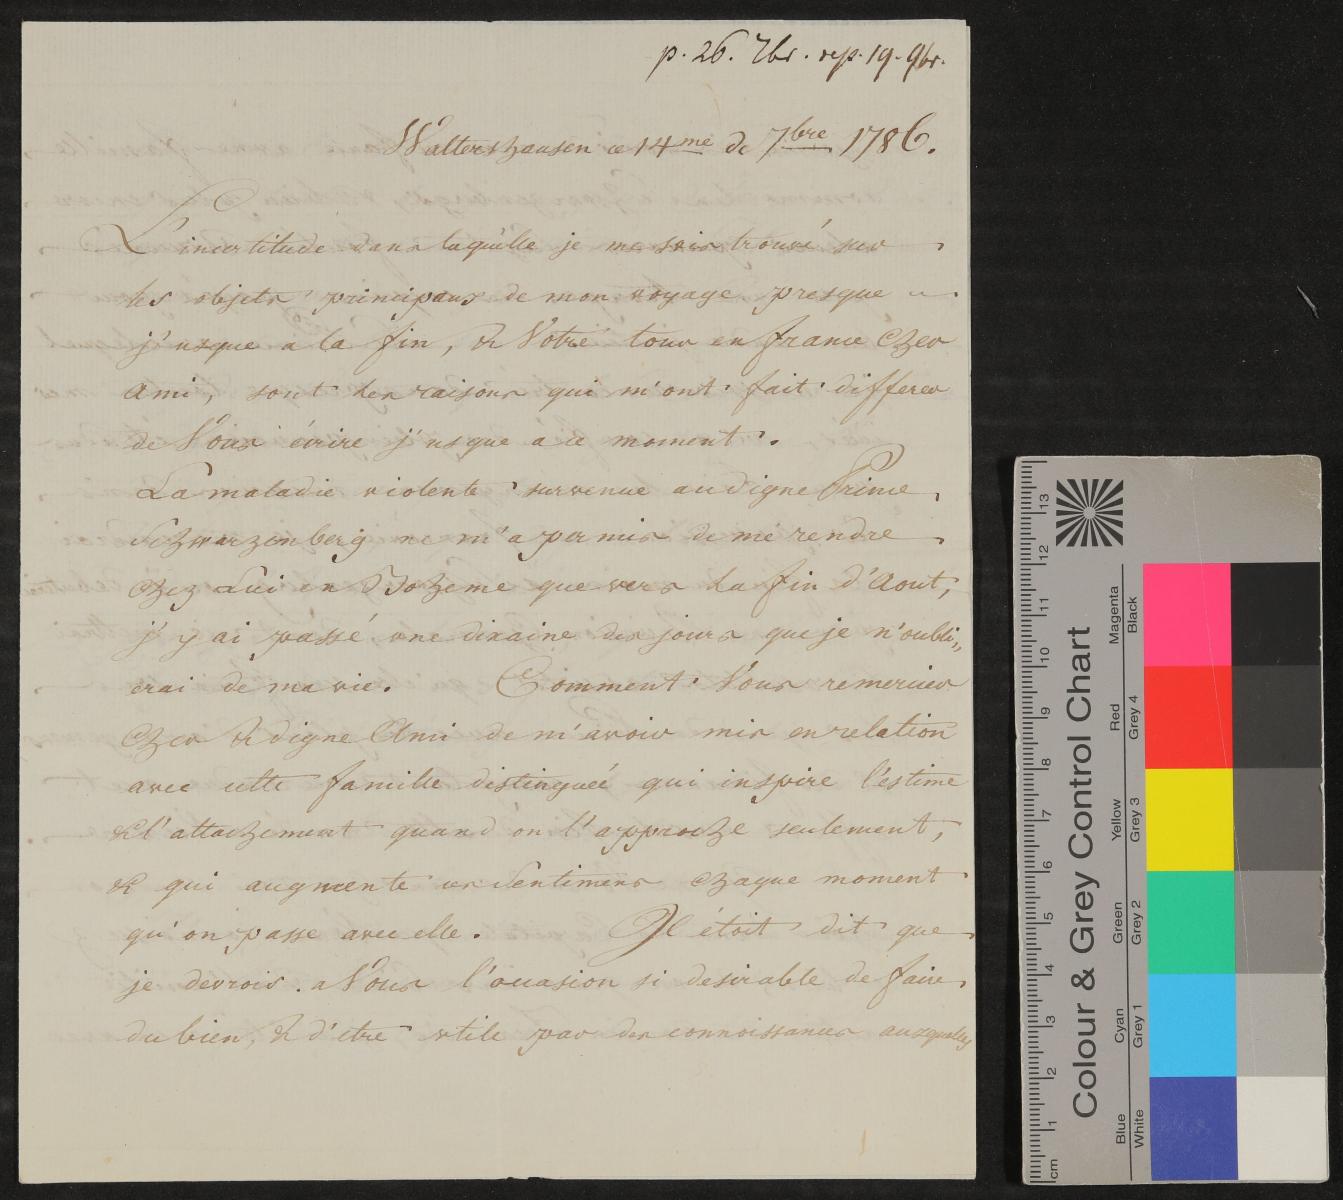 p. 26. 7br. rep. 19. 9br.
Waltershausen ce 14me de 7bre 1786.
L'incertitude dans laquelle je me suis trouvé sur
les objets principaux de mon voyage presque
j'usque a la fin, & Votre tour en france cher
Ami, sont les raisons qui m'ont fait differer
de Vous écrire j'usque a ce moment.
La maladie violente survenue au digne Prince
Schwarzenberg ne m'a permis de me rendre
chez Lui en Boheme que vers la fin d'Aout,
j'y ai passé une dixaine des jours que je n'oubli„
erai de ma vie. Comment Vous remercier
cher & digne Ami de m'avoir mis en relation
avec cette famille distinguée qui inspire l'estime
& l'attachement quand on l'approche seulement,
& qui augmente ces Sentimens chaque moment
qu'on passe avec elle. Il étoit dit que
je devrois a Vous l'occasion si desirable de faire
du bien, & d'etre utile par des connoissances auxquelles
cm 1 2 3 4 5 6 7 8 9 10 11 12 13
Colour & Grey Control Chart
Blue Cyan Green Yellow Red Magenta
White Grey 1 Grey 2 Grey 3 Grey 4 Black